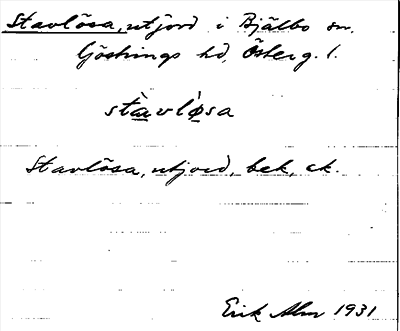 Stavlösa, utjord i Bjälbo sn.
Göstrings hd, Österg. l.
stàvlø̀sa
Stavlösa, utjord, bek, ek.
Erik Alm 1931